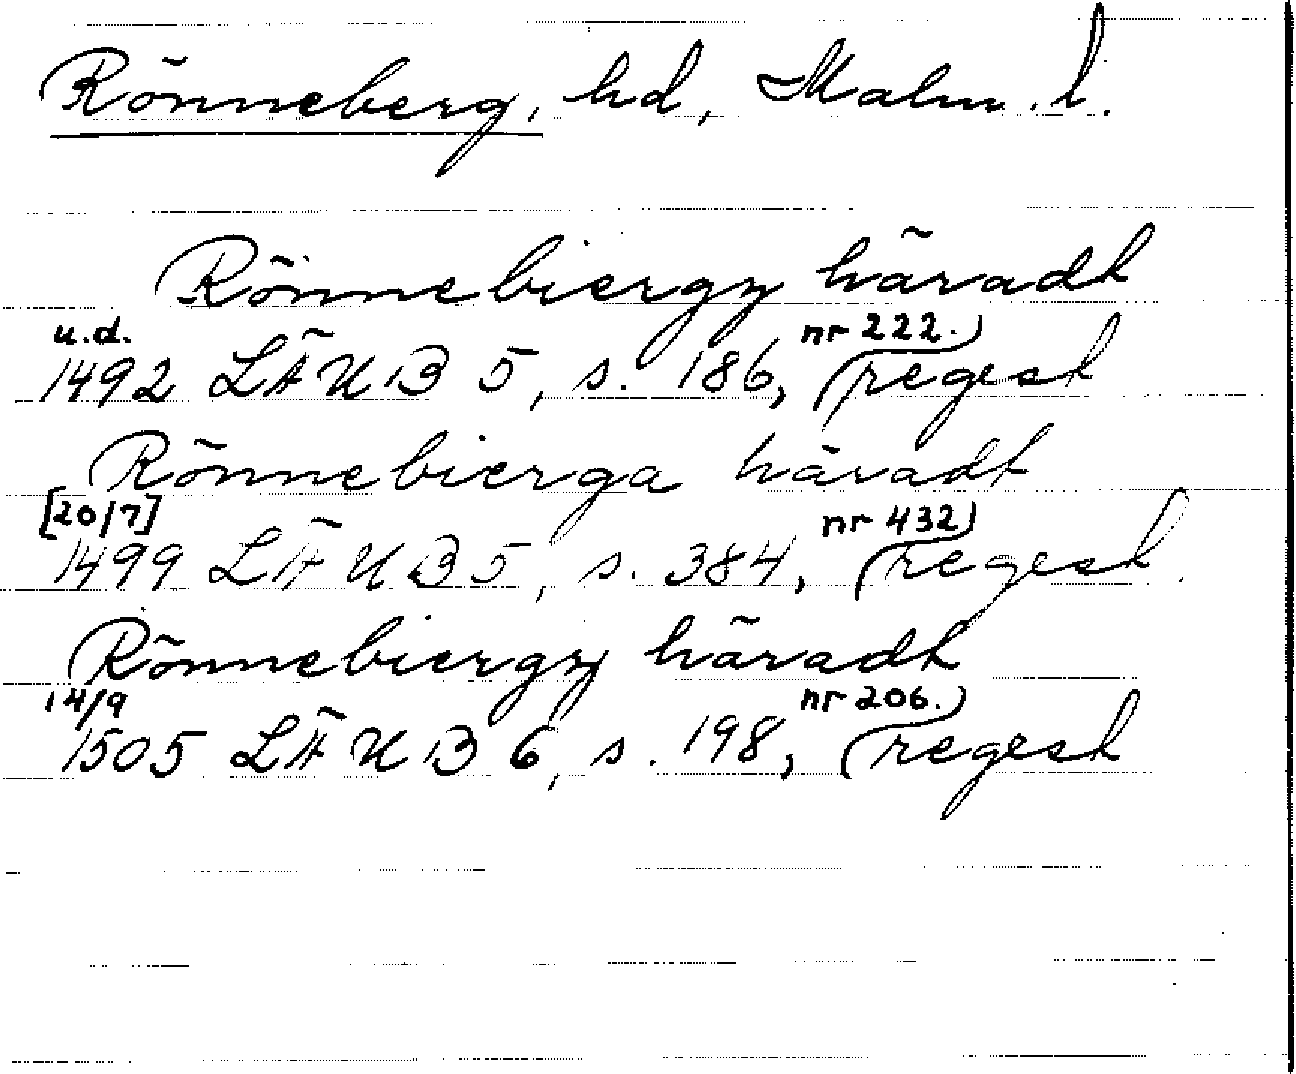 Rönneberg, hd, Malm. l.
Rönnebiergz häradt
u.d. nr 222.)
1492 LÄUB 5, s. 186, (regest
Rönnebierga häradt
[20/7] nr 432)
1499 LÄUB 5, s. 384, (regest
Rönnebiergz häradt
14/9 nr 206.)
1505 LÄUB 6, s. 198, (regest